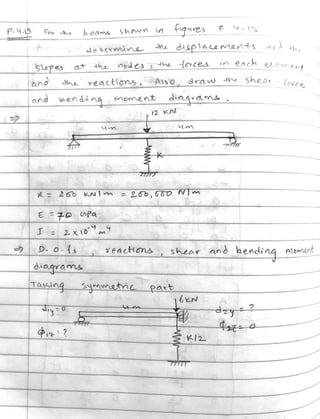 P. 4.13 For the beams shown in figures P 4-13
determine the displacements and the
slopes at the nodes, the forces in each element
and the reactions. Also, draw the shear force
and bending moment diagrams.
⇒ 12 KN
4m 4m
K
K = 200 KN/m = 200,000 N/m
E = 70 GPa
I = 2 × 10⁻⁴ m⁴
⇒ D.o.fs, reactions, shear and bending moment
diagrams
Taking symmetric part
6KN
d1y = 0 4m d2y = ?
ϕ1z: ? ϕ2z = 0
K/2